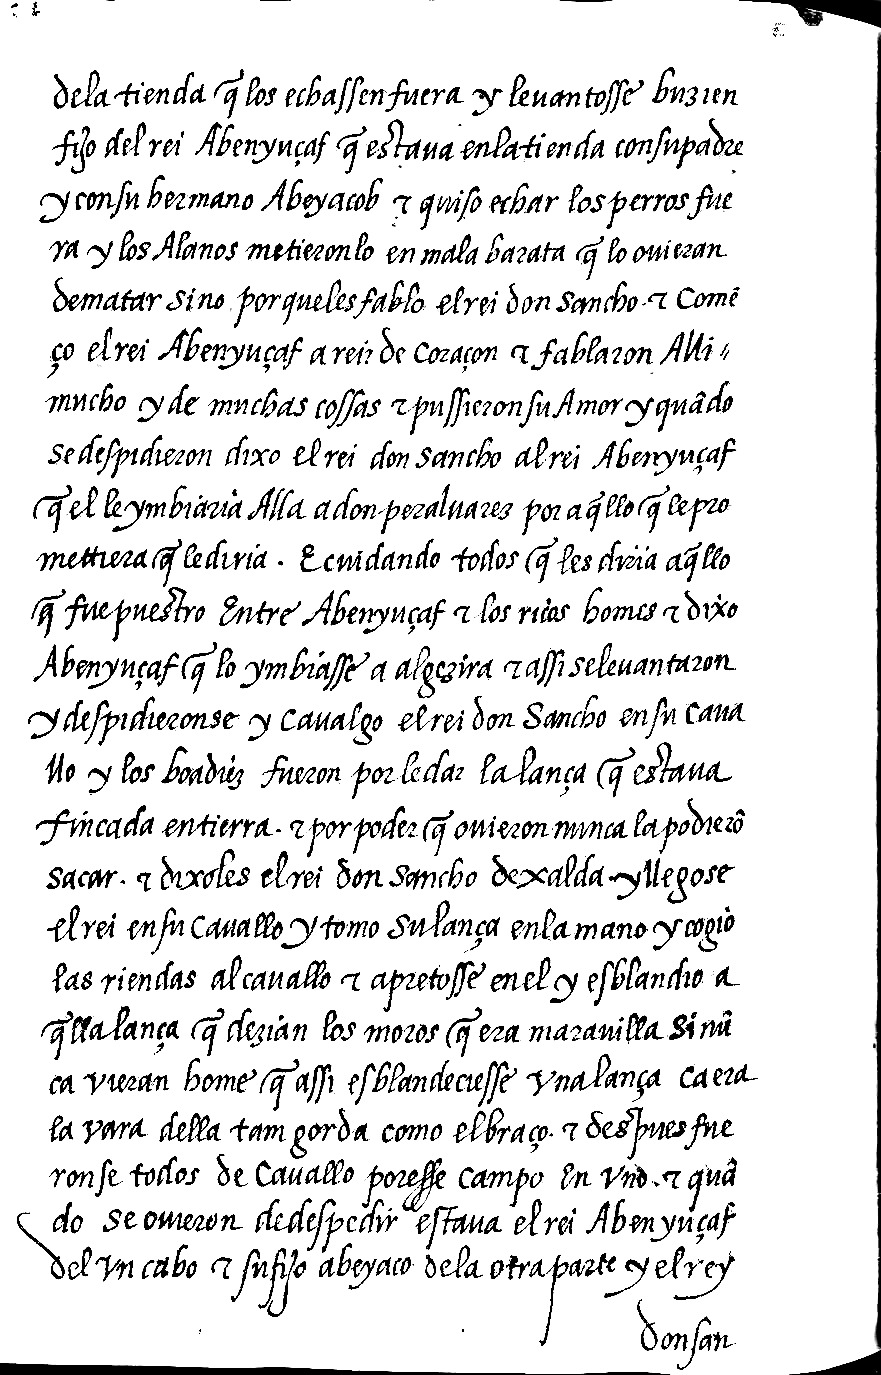 dela tienda q̃ los echassen fuera y leuantosse buzien
fijo del rei Abenyuçaf q̃ estaua enla tienda consu padre
y consu hermano Abeyacob ⁊ quiso echar los perros fue
ra y los Alanos metieronlo en mala barata q̃ lo ouieran
dematar sino porqueles fablo el rei don sancho ⁊ Comẽ
ço el rei Abenyuçaf a reir de Coraçon ⁊ fablaron Alli
mucho y de muchas cossas ⁊ pussieron su Amor y quãdo
se despidieron dixo el rei don sancho al rei Abenyuçaf
q̃ el le ymbiaria Alla a don peraluarez por aq̃llo q̃ le pro
mettiera q̃ le diria. E cuidando todos q̃ les diria aq̃llo
q̃ fue puestro Entre Abenyuçaf ⁊ los ricos homes ⁊ dixo
Abenyuçaf q̃ lo ymbiasse a algezira ⁊ assi se leuantaron
y despidieronse y caualgo el rei don Sancho en su caua
llo y los boadiez fueron por le dar la lança q̃ estaua
fincada en tierra. ⁊ por poder q̃ ouieron nunca la podierõ
sacar. ⁊ dixoles el rei don sancho dexalda y llegose
el rei en su Cauallo y tomo su lança enla mano y cogio
las riendas al cauallo ⁊ apretosse en el y esblandio a
q̃lla lança q̃ dezian los moros q̃ era marauilla si nũ
ca vieran home q̃ assi esblandeciesse vna lança ca era
la vara della tam gorda como el braço. ⁊ despues fue
ronse todos de Cauallo poresse campo En vno. ⁊ quã
do se ouieron dedespedir estaua el rei Abenyuçaf
del vn cabo ⁊ su fijo abeyaco dela otra parte y el rey
don san